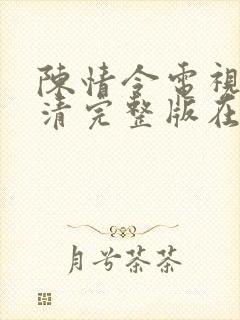 陳情令電視
清完整版在
月兮茶茶